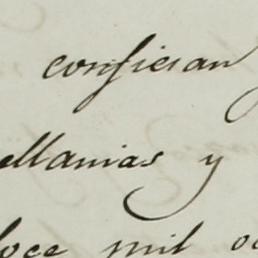 confieran
ellanias y
doce mil oc